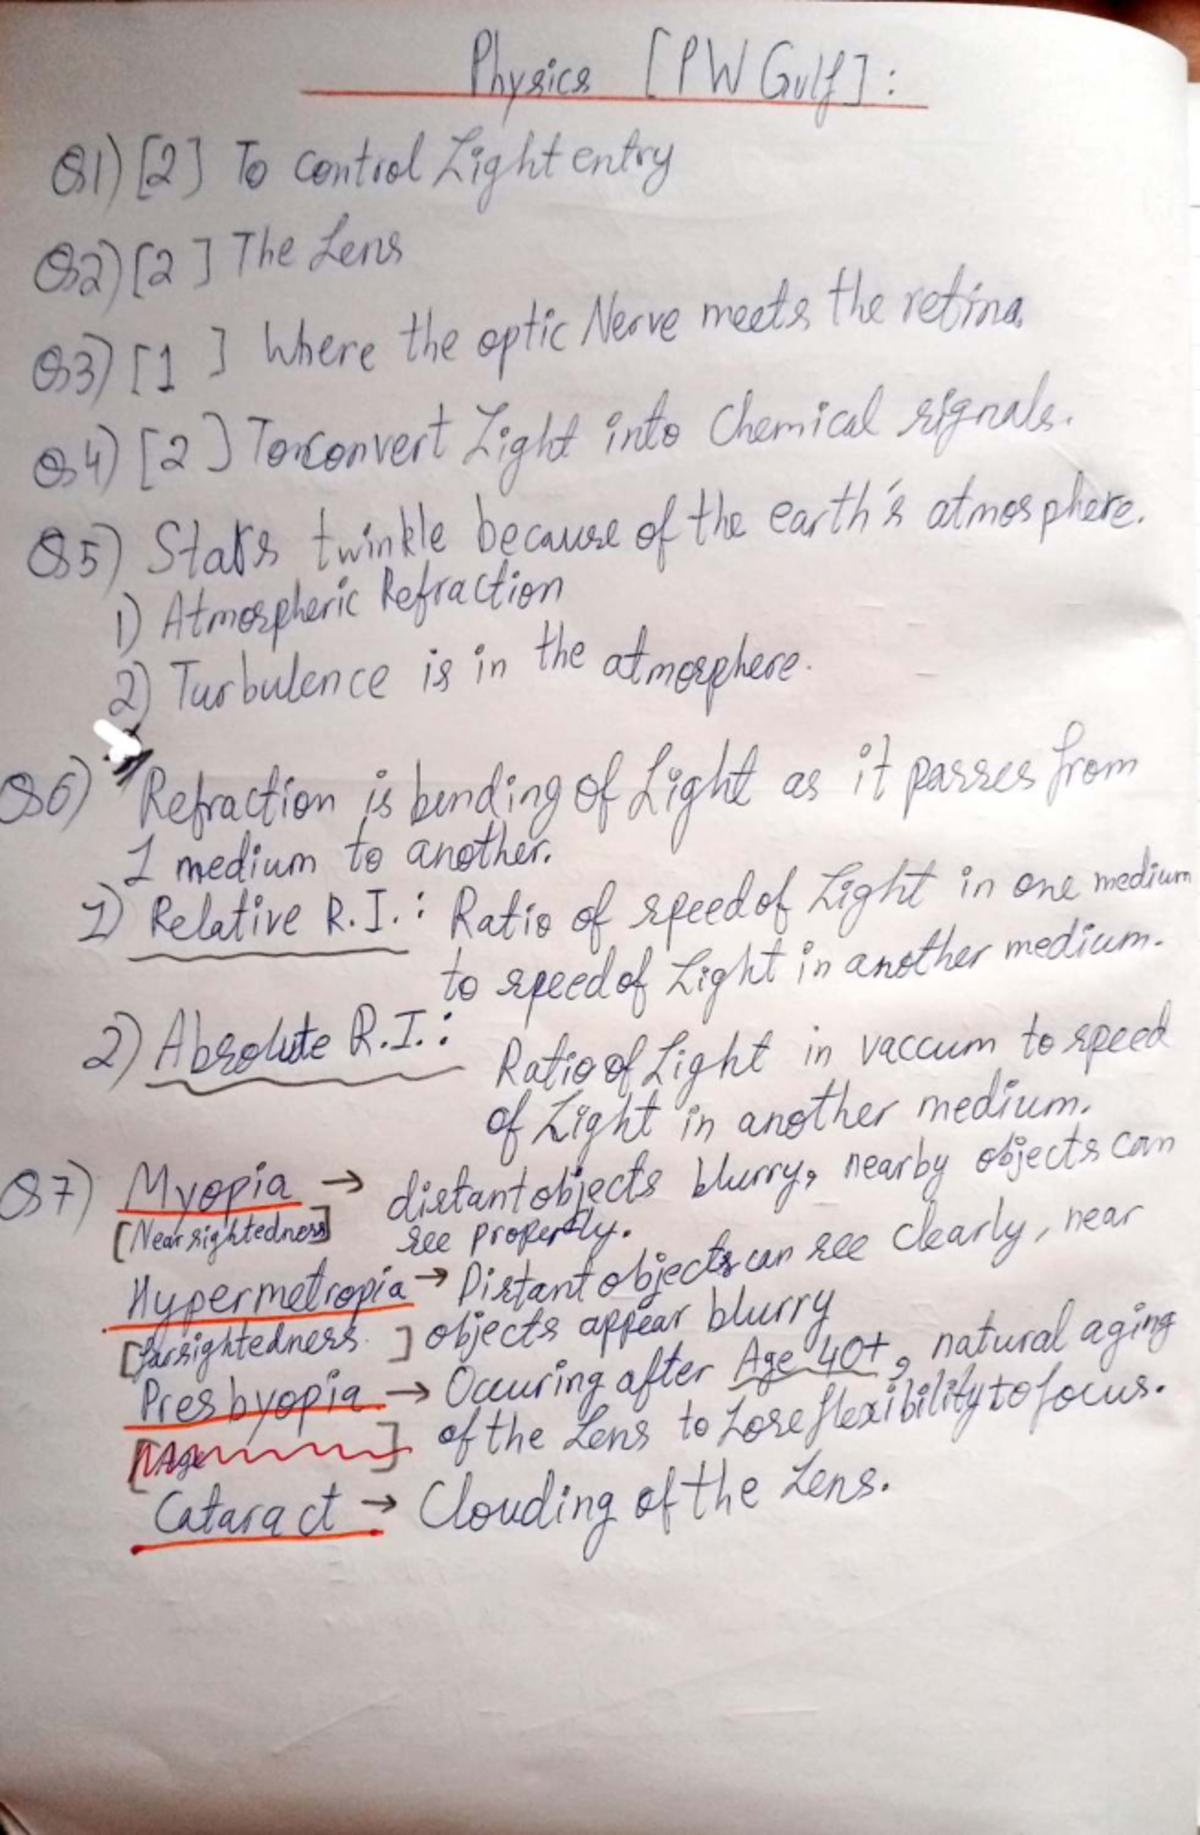 Physics [PW Gulf]:
Q1) [2] To control Light entry
Q2) [2] The Lens
Q3) [1 ] Where the optic Nerve meets the retina.
Q4) [2] To convert Light into Chemical signals.
Q5) Stars twinkle because of the earth's atmosphere.
1) Atmospheric Refraction
2) Turbulence is in the atmosphere.
Q6) Refraction is bending of Light as it passes from
1 medium to another.
1) Relative R.I.: Ratio of speed of Light in one medium
to speed of Light in another medium.
2) Absolute R.I.: Ratio of Light in vaccum to speed
of Light in another medium.
Q7) Myopia → distant objects blurry, nearby objects can
[Near sightedness] see properly.
Hypermetropia → Distant objects can see clearly, near
[farsightedness ] objects appear blurry
Presbyopia → Occuring after Age 40+, natural aging
[Age ] of the Lens to Lose flexibility to focus.
Cataract → Clouding of the Lens.